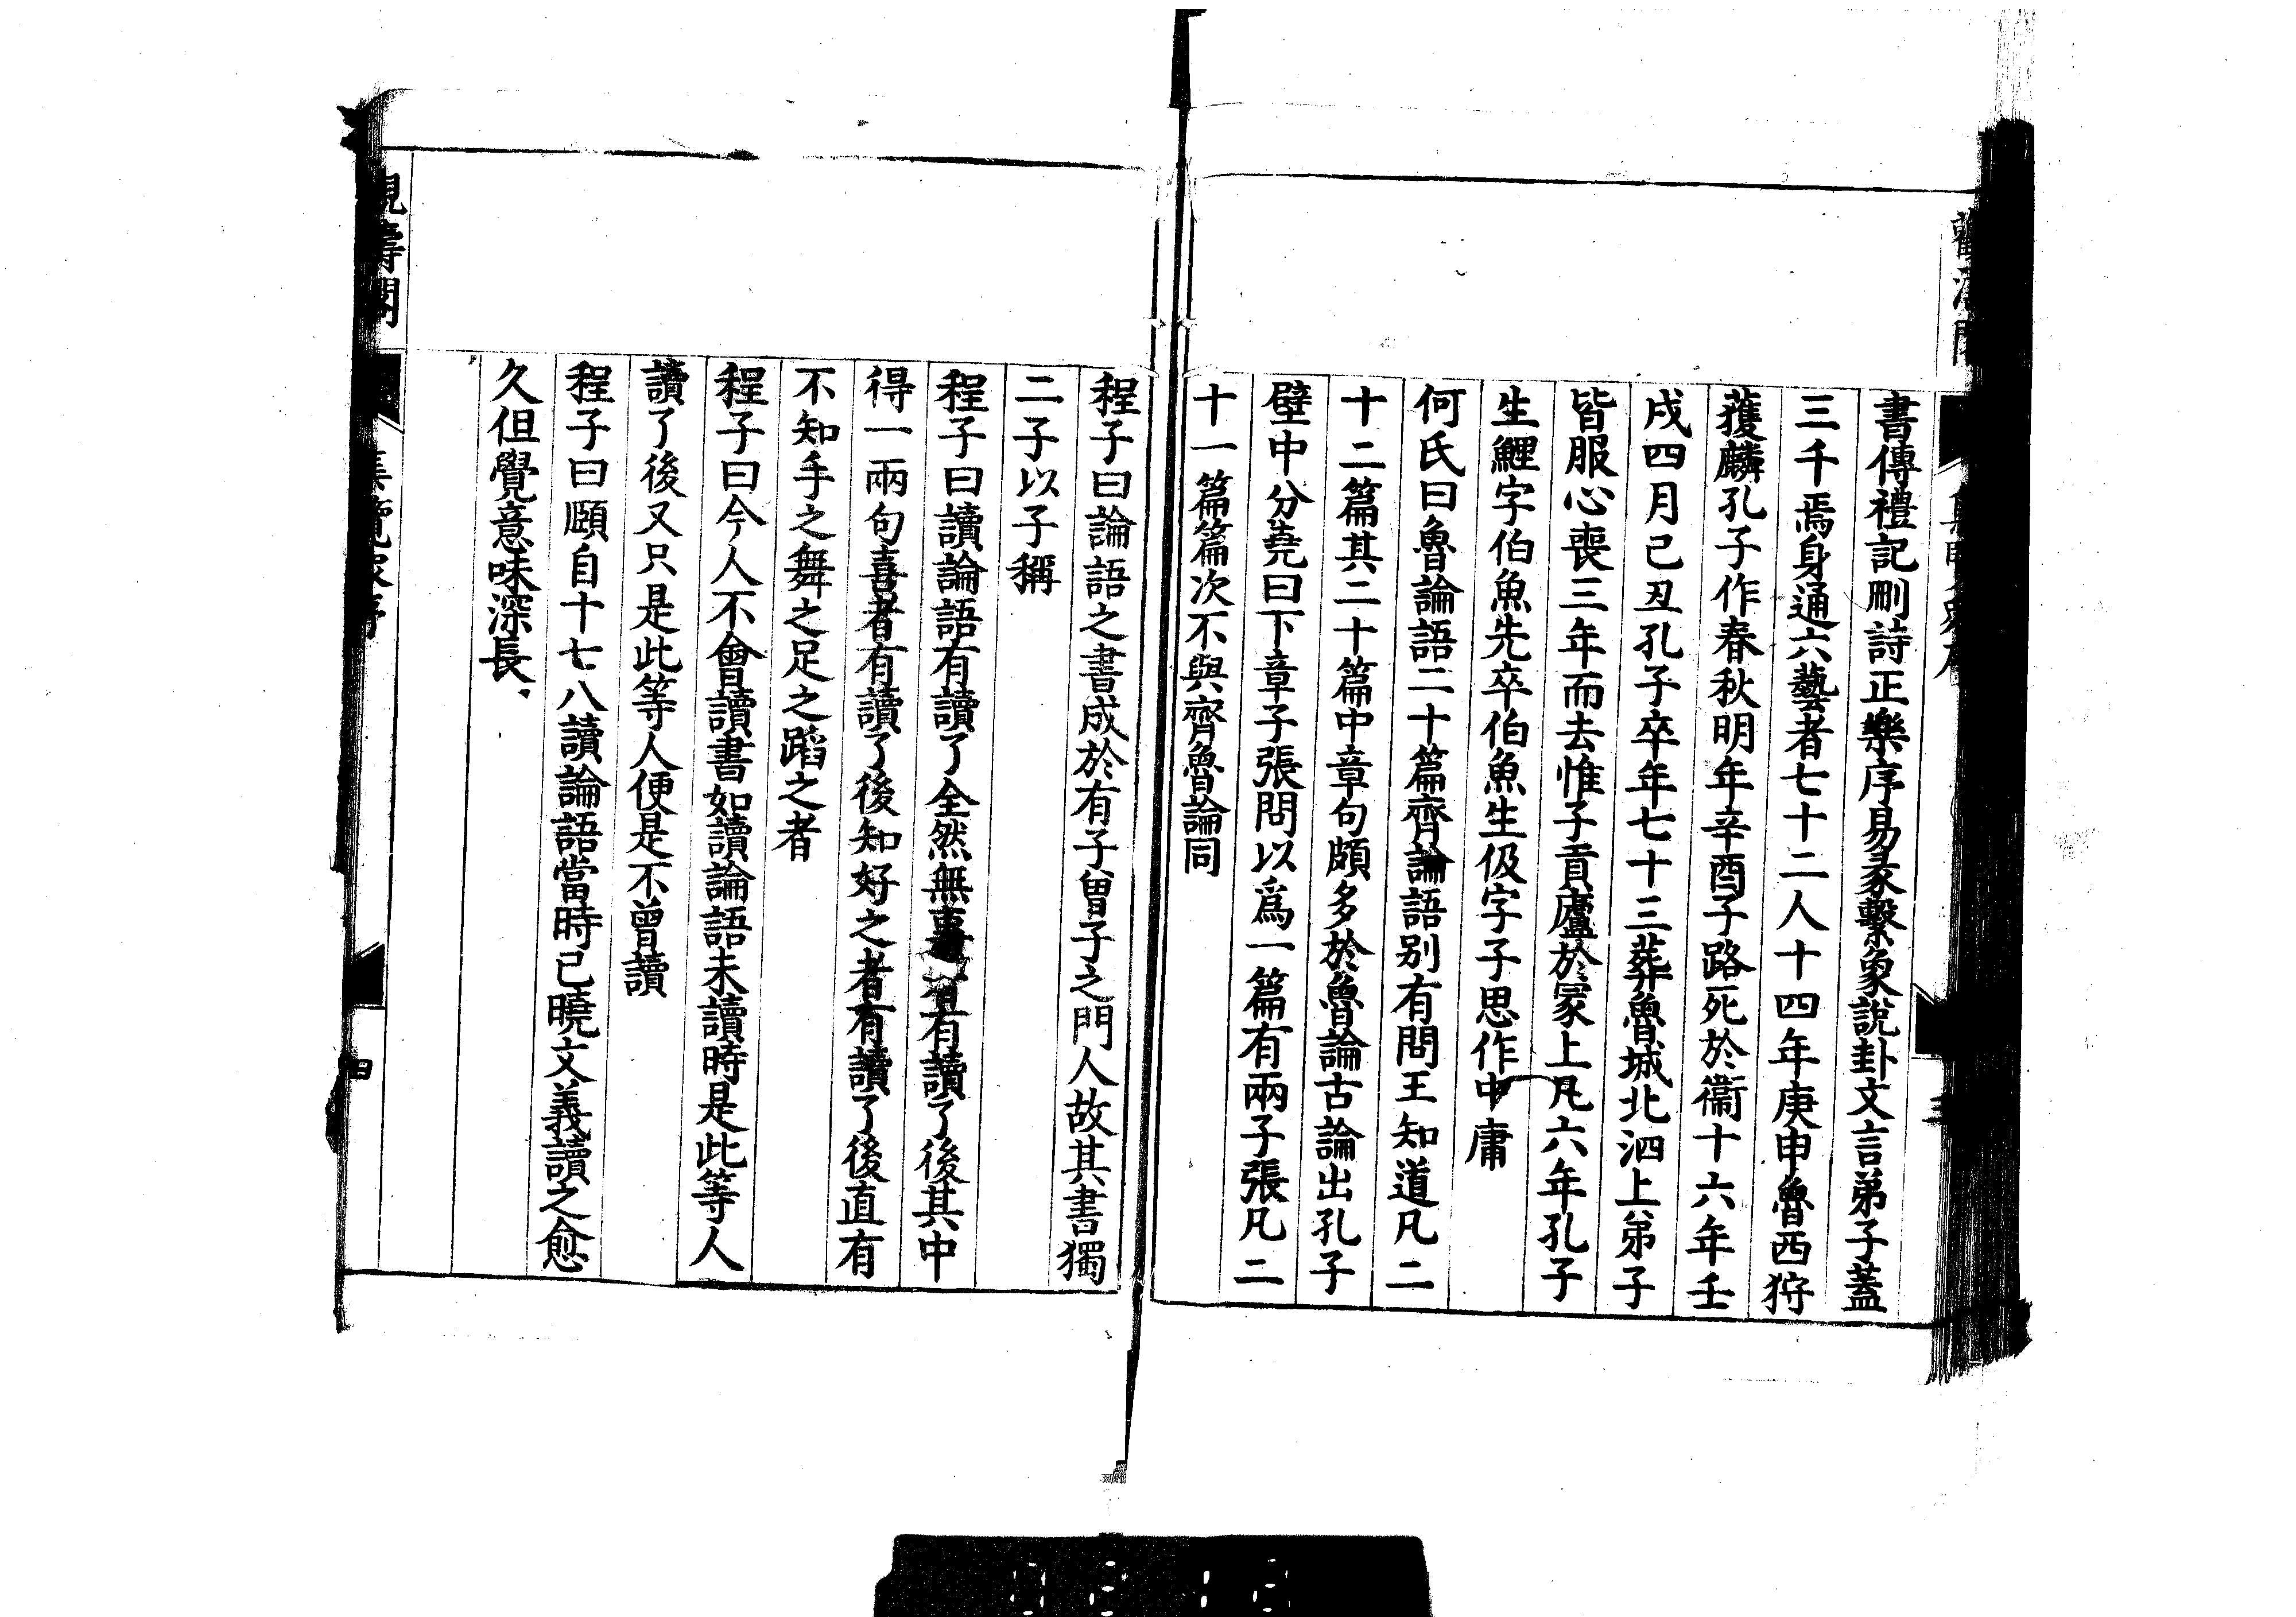 書傳禮記刪詩正樂序易彖繫象說卦文言弟子蓋
三千焉身通六藝者七十二人十四年庚申魯西狩
獲麟孔子作春秋明年辛酉子路死於衞十六年壬
戌四月己丑孔子卒年七十三葬魯城北泗上弟子
皆服心喪三年而去惟子貢廬於冢上凡六年孔子
生鯉字伯魚先卒伯魚生伋字子思作中庸
何氏曰魯論語二十篇齊論語别有問王知道凡二
十二篇其二十篇中章句頗多於魯論古論出孔子
壁中分堯曰下章子張問以爲一篇有兩子張凡二
十一篇篇次不與齊魯論同
程子曰論語之書成於有子曾子之門人故其書獨
二子以子稱
程子曰讀論語有讀了全然無事者有讀了後其中
得一兩句喜者有讀了後知好之者有讀了後直有
不知手之舞之足之蹈之者
程子曰今人不會讀書如讀論語未讀時是此等人
讀了後又只是此等人便是不曾讀
程子曰頤自十七八讀論語當時已曉文義讀之愈
久但覺意味深長